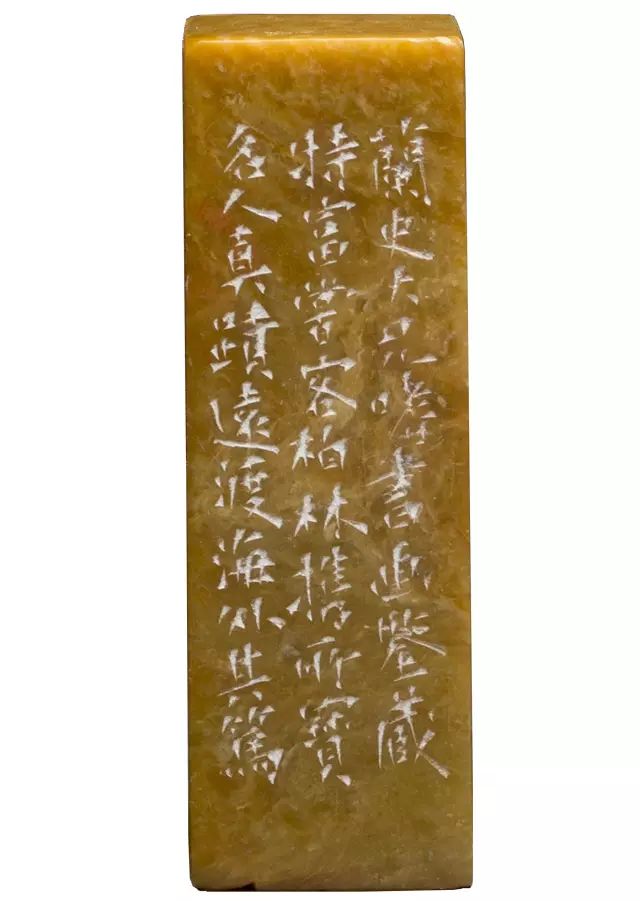 蘭史大兄嗜書畫鑒藏
特富嘗客柏林携所寶
名人真蹟遠渡海外其篤